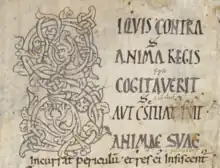 SIQVIS CONTRA
ANIMA REGIS
COGITAVERIT
AVT CSILIAT
ANIMAE SVAE
incurrat periculũ et res ei infiscent